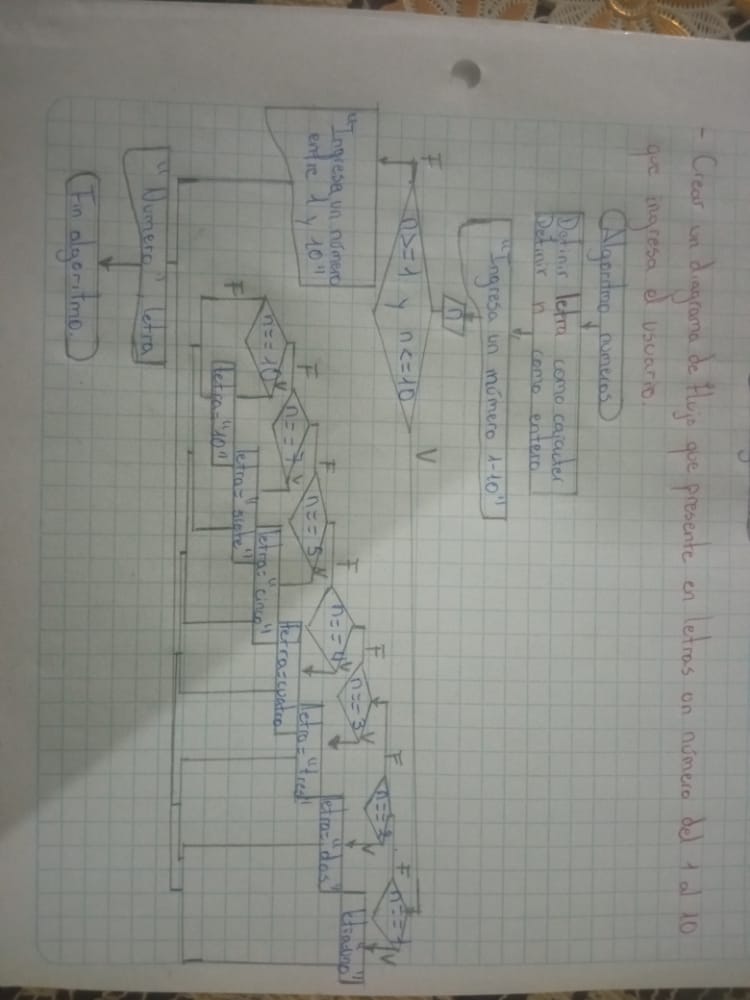 - Crear un diagrama de flujo que presente en letras un número del 1 al 10
que ingresa el usuario.
Algoritmo numeros
Definir letra como caracter
Definir n como entero
"Ingresa un número 1-10"
n
F
n>=1 y n<=10
V
"Ingresa un número
entre 1 y 10"
F
n==1
V
letra="uno"
F
n==2
V
letra="dos"
F
n==3
V
letra="tres"
F
n==4
V
letra=cuatro
F
n==5
V
letra="cinco"
F
n==7
V
letra="siete"
F
n==10
V
letra="10"
"Numero" letra
Fin algoritmo.